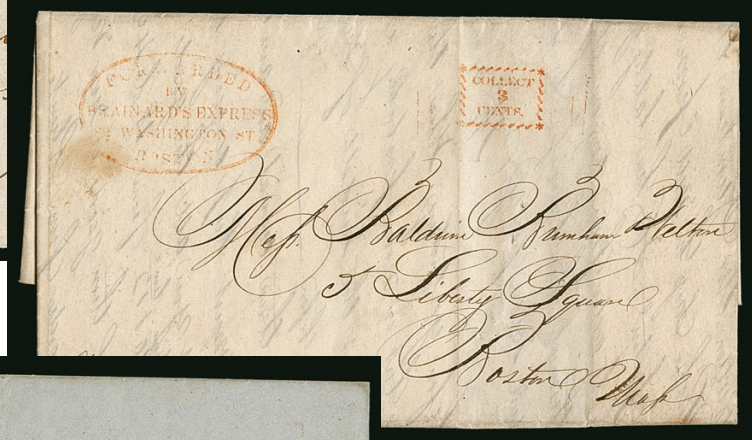 FORWARDED
BY
BRAINARD'S EXPRESS
WASHINGTON ST
BOSTON
COLLECT
8
CENTS.
Mess. Baldwin Burnham & Welton
5 Liberty Square
Boston Mass